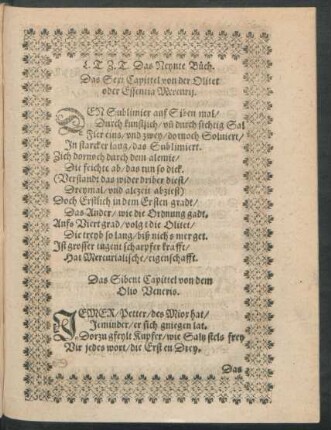 L. T Z. T. Das Neynte Büch.
Das Sext Capittel von der Olitet
oder Essentia Mercurij.
DEN Sublimier auf Siben mal/
Durch kunstlich/ vñ durch sichtig Sal
Fier eins/ vnd zwey/ dornoch Soluiert/
In starcker lang/ das Sublimiert.
Zich dornoch durch dem alemie/
Die feichte ab/ das nun so dick.
(Verstandt das wider driber diest/
Dreymal/ vnd alczeit abziest)
Doch Erstlich in dem Ersten gradt/
Das Ander/ wie die Ordnung gadt,
Aufs Viert grad/ volgt die Olitet/
Die treyb so lang/ biß nich s mer get.
Ist grosser tugent scharpfer krafft/
Hat Mercurialische/ eigenschafft.
Das Sibent Capittel von dem
Olio Veneris.
JEMER/ Petter/ des Mior hat/
Jeminder/ er sich gniegen lat.
Dorzu gfeylt Kupfer/ wie Saly stets frey
Vir jedes wort/ die Erst en Drey.
Das